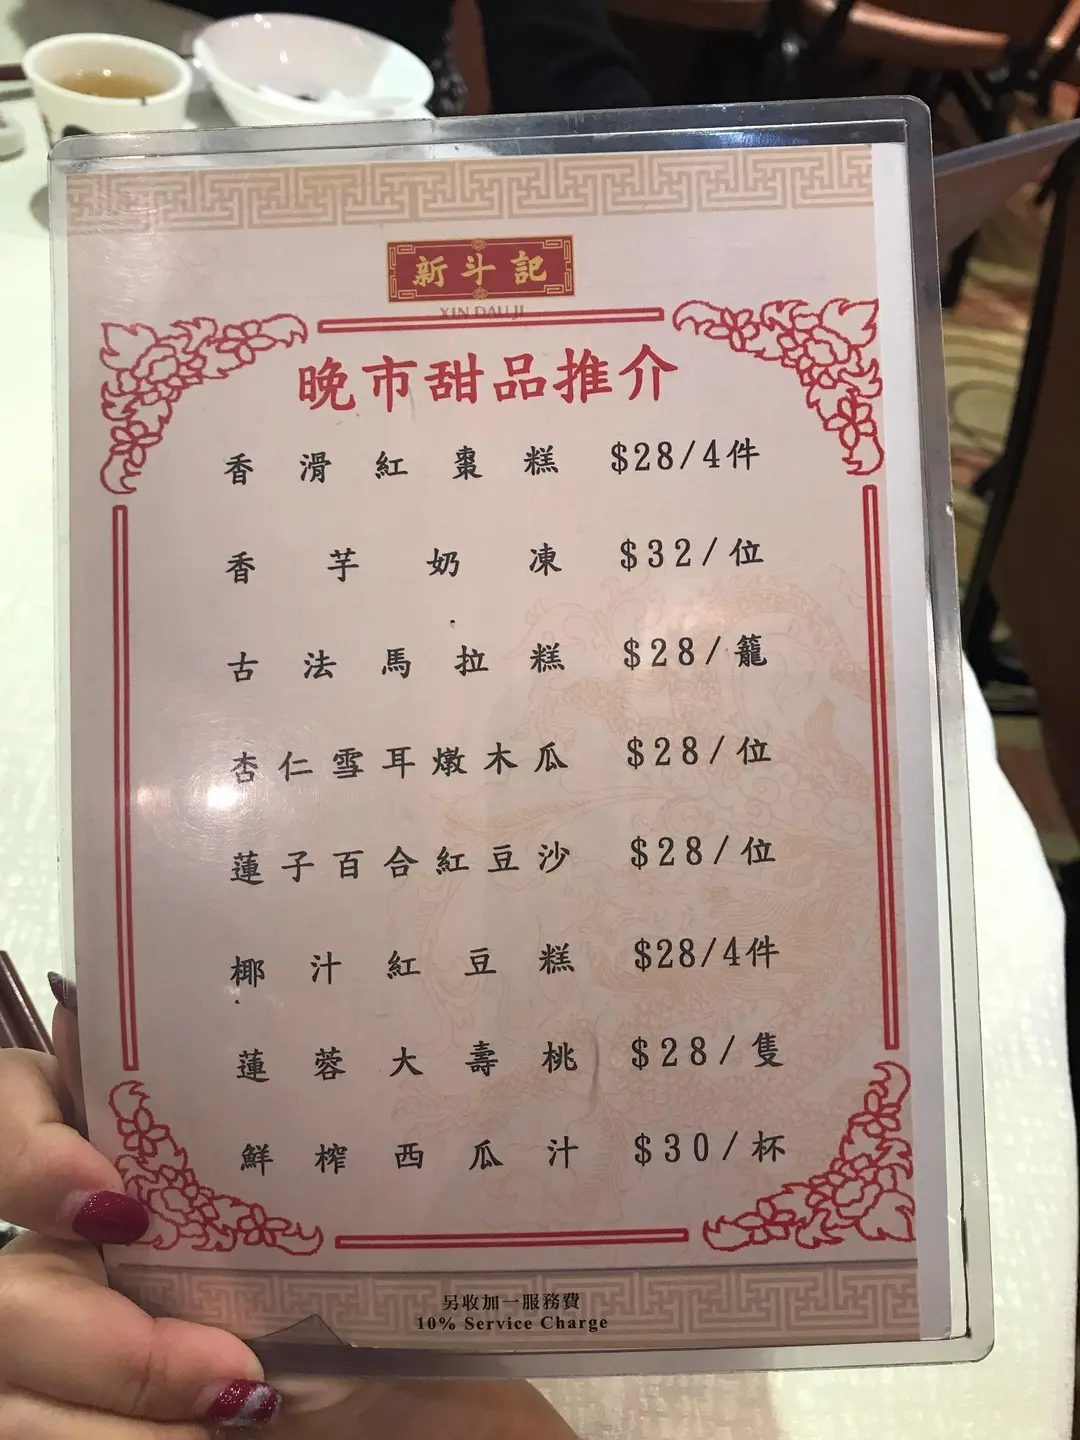 新斗記
XIN DAU JI
晚市甜品推介
香滑紅棗糕 $28/4件
香芋奶凍 $32/位
古法馬拉糕 $28/籠
杏仁雪耳燉木瓜 $28/位
蓮子百合紅豆沙 $28/位
椰汁紅豆糕 $28/4件
蓮蓉大壽桃 $28/隻
鮮榨西瓜汁 $30/杯
另收加一服務費
10% Service Charge